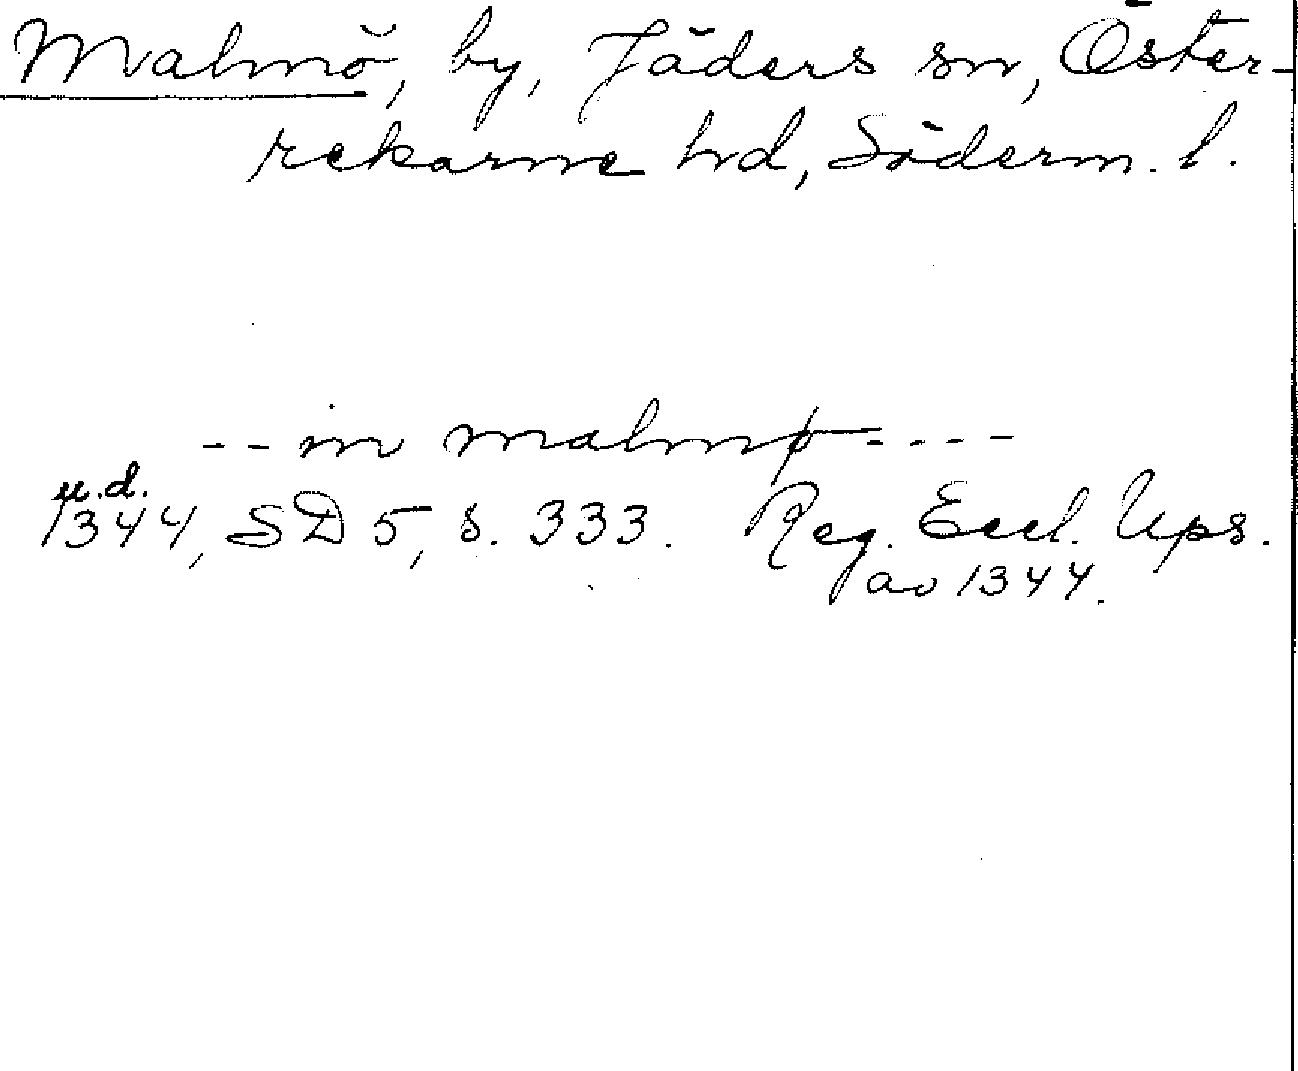 Malmö, by, Jäders sn, Öster-
rekarne hd, Söderm. l.
-- in malmø ----
u.d.
1344, SD 5, s. 333. Reg. Eccl. Ups.
av 1344.